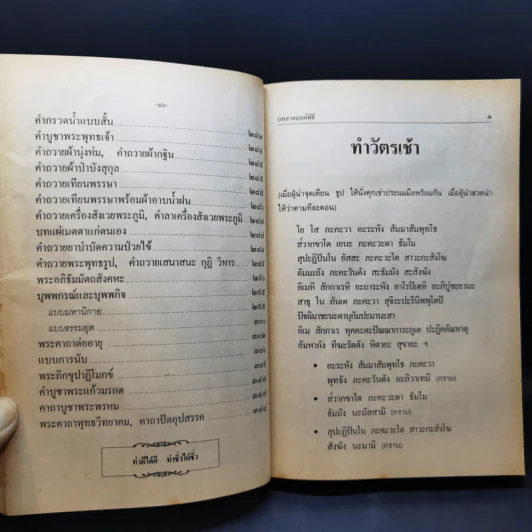 คำกรวดน้ำแบบสั้น ๒๘๑
คำบูชาพระพุทธเจ้า ๒๘๔
คำถวายผ้านุ่งห่ม, คำถวายผ้ากฐิน ๒๘๕
คำถวายผ้าป่าบังสุกุล ๒๘๕
คำถวายเทียนพรรษา
คำถวายเทียนพรรษาพร้อมผ้าอาบน้ำฝน
คำถวายเครื่องสังเวยพระภูมิ, คำลาเครื่องสังเวยพระภูมิ
บทแผ่เมตตาแก่ตนเอง
คำถวายยาบำบัดความป่วยไข้
คำถวายพระพุทธรูป, คำถวายเสนาสนะ กุฏิ วิหาร
พระอภิธัมมัตถสังคหะ
บุพพกรณ์และบุพพกิจ ๒๙๕
แบบมหานิกาย
แบบธรรมยุต ๓๐๑
พระคาถาต่ออายุ ๓๐๒
แบบการนับ
พระภิกขุปาฏิโมกข์
คำบูชาพระแก้วมรกต ๓๔๗
คาถาบูชาพระพรหม
พระคาถาพุทธวิทยาคม, คาถาปัดอุปสรรค
ทำดีได้ดี ทำชั่วได้ชั่ว
บทสวดมนต์พิธี ๑
ทำวัตรเช้า
(เมื่อผู้นำจุดเทียน ธูป ให้นั่งคุกเข่าประนมมือพร้อมกัน เมื่อผู้สวดนำ
ให้ว่าตามทีละตอน)
โย โส ภะคะวา อะระหัง สัมมาสัมพุทโธ
สวากขาโต เยนะ ภะคะวะตา ธัมโม
สุปะฏิปันโน ยัสสะ ภะคะวะโต สาวะกะสังโฆ
ตัมมะยัง ภะคะวันตัง สะธัมมัง สะสังฆัง
อิเมหิ สักกาเรหิ ยะถาระหัง อาโรปิเตหิ อะภิปูชะยามะ
สาธุ โน ภันเต ภะคะวา สุจิระปะรินิพพุโตปิ
ปัจฉิมาชะนะตานุกัมปะมานะสา
อิเม สักกาเร ทุคคะตะปัณณาการะภูเต ปะฏิคคัณหาตุ
อัมหากัง ทีฆะรัตตัง หิตายะ สุขายะ ฯ
• อะระหัง สัมมาสัมพุทโธ ภะคะวา
พุทธัง ภะคะวันตัง อะภิวาเทมิ (กราบ)
• สวากขาโต ภะคะวะตา ธัมโม
ธัมมัง นะมัสสามิ (กราบ)
• สุปะฏิปันโน ภะคะวะโต สาวะกะสังโฆ
สังฆัง นะมามิ (กราบ)